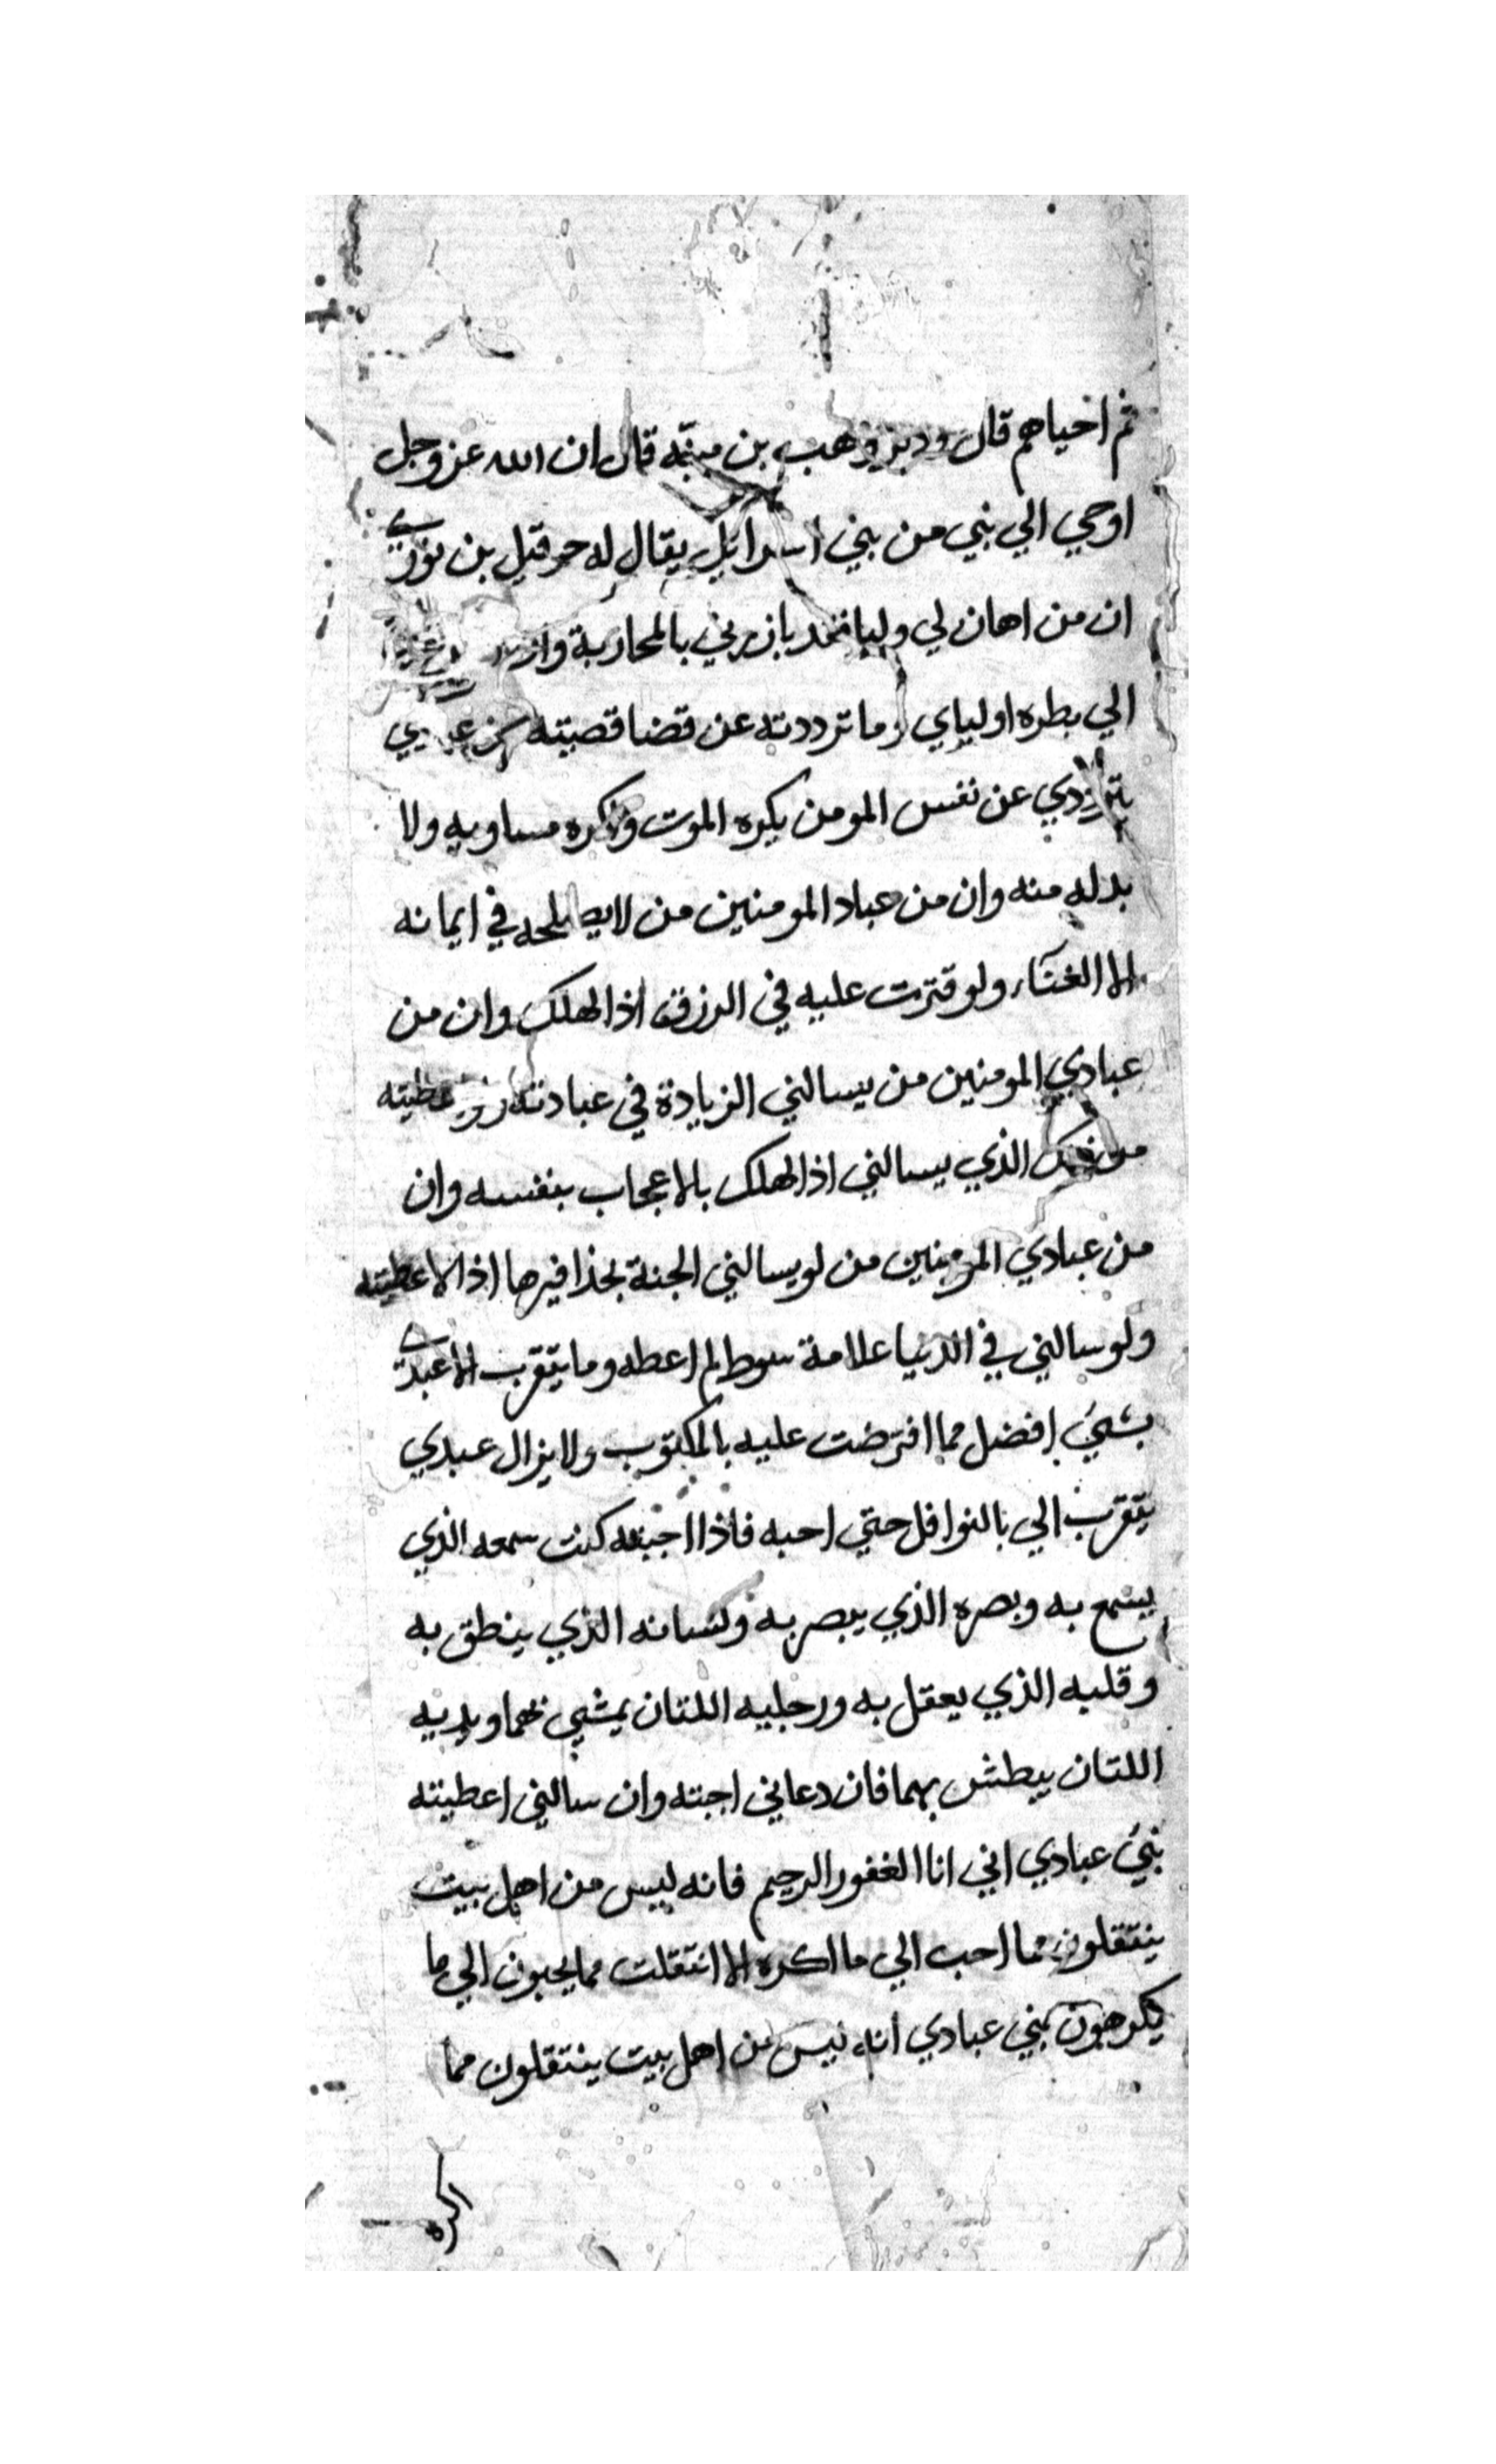 ثم احياهم قال وهب بن منبه قال ان الله عز وجل
اوحي الي نبي من بني اسرايل يقال له حزقيل بن نوري
ان من اهان لي وليا فقد بارزني بالمحاربة وانا
الي بطره اولياي وما ترددته عن قضا قضيته عن عبدي
ترددي عن نفس المومن يكره الموت واكره مساويه ولا
بد له منه وان من عباد المومنين من لا يصلحه في ايمانه
الا الغناء ولو قترت عليه في الرزق اذا لهلك وان من
عبادي المومنين من يسالني الزيادة في عبادته ولو اعطيته
من ذلك الذي يسالني اذا لهلك بالاعجاب بنفسه وان
من عبادي المومنين من لو يسالني الجنة بحذافيرها اذا لاعطيته
ولو سالني في الدنيا علامة سوط لم اعطه وما يتقرب الا عبدي
بشيء افضل مما افترضت عليه بالمكتوب ولا يزال عبدي
يتقرب الي بالنوافل حتي احبه فاذا احببته كنت سمعه الذي
يسمع به وبصره الذي يبصر به ولسانه الذي ينطق به
وقلبه الذي يعقل به ورجليه اللتان يمشي بهما ويديه
اللتان يبطش بهما فان دعاني اجبته وان سالني اعطيته
نبئ عبادي اني انا الغفور الرحيم فانه ليس من اهل بيت
ينتقلون مما احب الي ما اكره الا انتقلت مما يحبون الي ما
يكرهون نبي عبادي انه ليس من اهل بيت ينتقلون مما
اكره